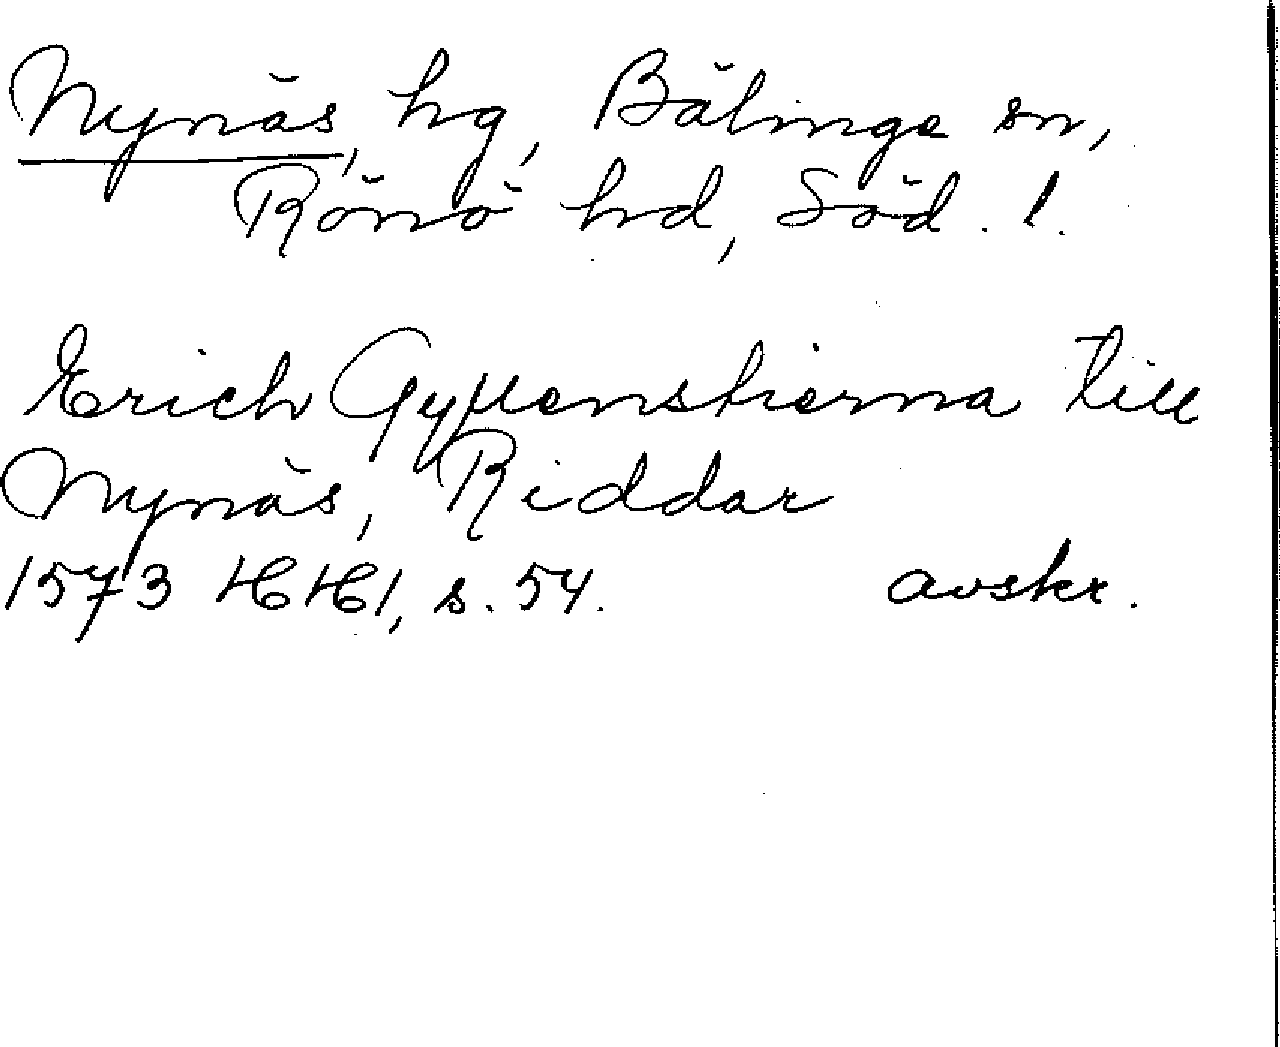 Nynäs, hg, Bälinge sn,
Rönö hd, Söd. l.
Erich Gyllenstierna till
Nynäs, Riddar
1573 HH1, s. 54. avskr.